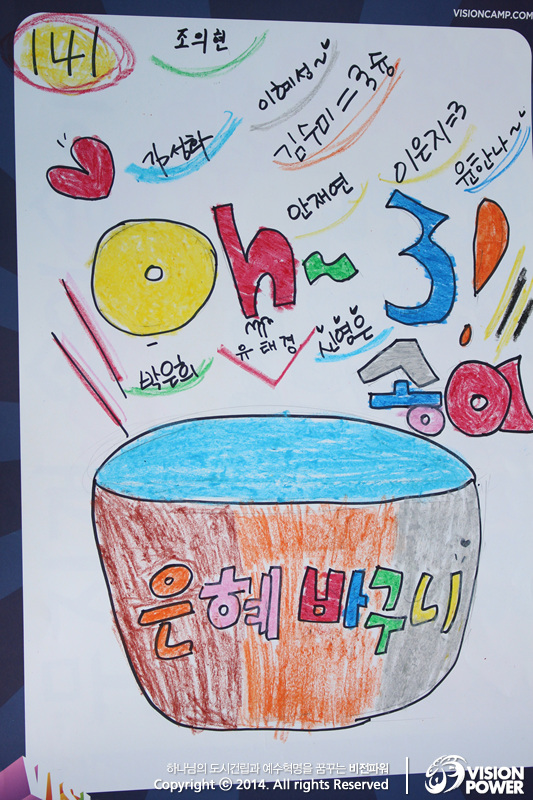 VISIONCAMP.COM
141
조의현
이혜성~
김수미=3 슝
김성화
이은지=3
윤한나~
안재연
Oh~ 3!
유태경
신영은
박은희
은혜 바구니
하나님의 도시건립과 예수혁명을 꿈꾸는 비전파워
Copyright ⓒ 2014. All rights Reserved
VISION
POWER